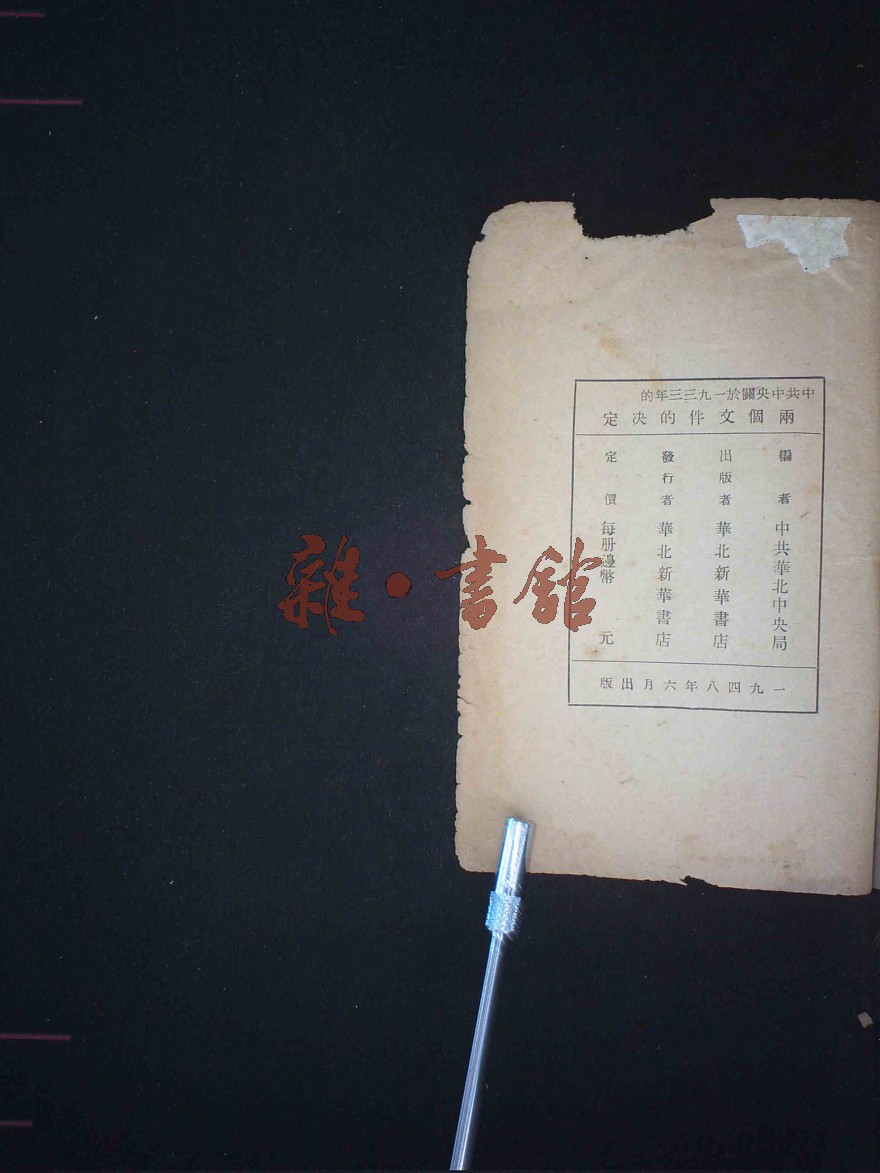 中共中央關於一九三三年的
兩個文件的決定
編者 中共華北中央局
出版者 華北新華書店
發行者 華北新華書店
定價 每册邊幣 元
一九四八年六月出版
雜·書館